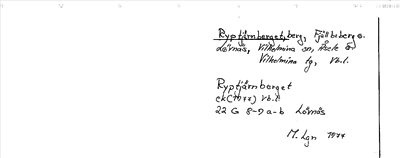 Ryptjärnberget, berg, Fjällboberg o.
Lövnäs, Vilhelmina sn, Åsele o
Vilhelmina tg, Vb.l.
Ryptjärnberget
ek (1977) Vb.l.
22 G 8-9 a-b Lövnäs
M. Lgn 1977